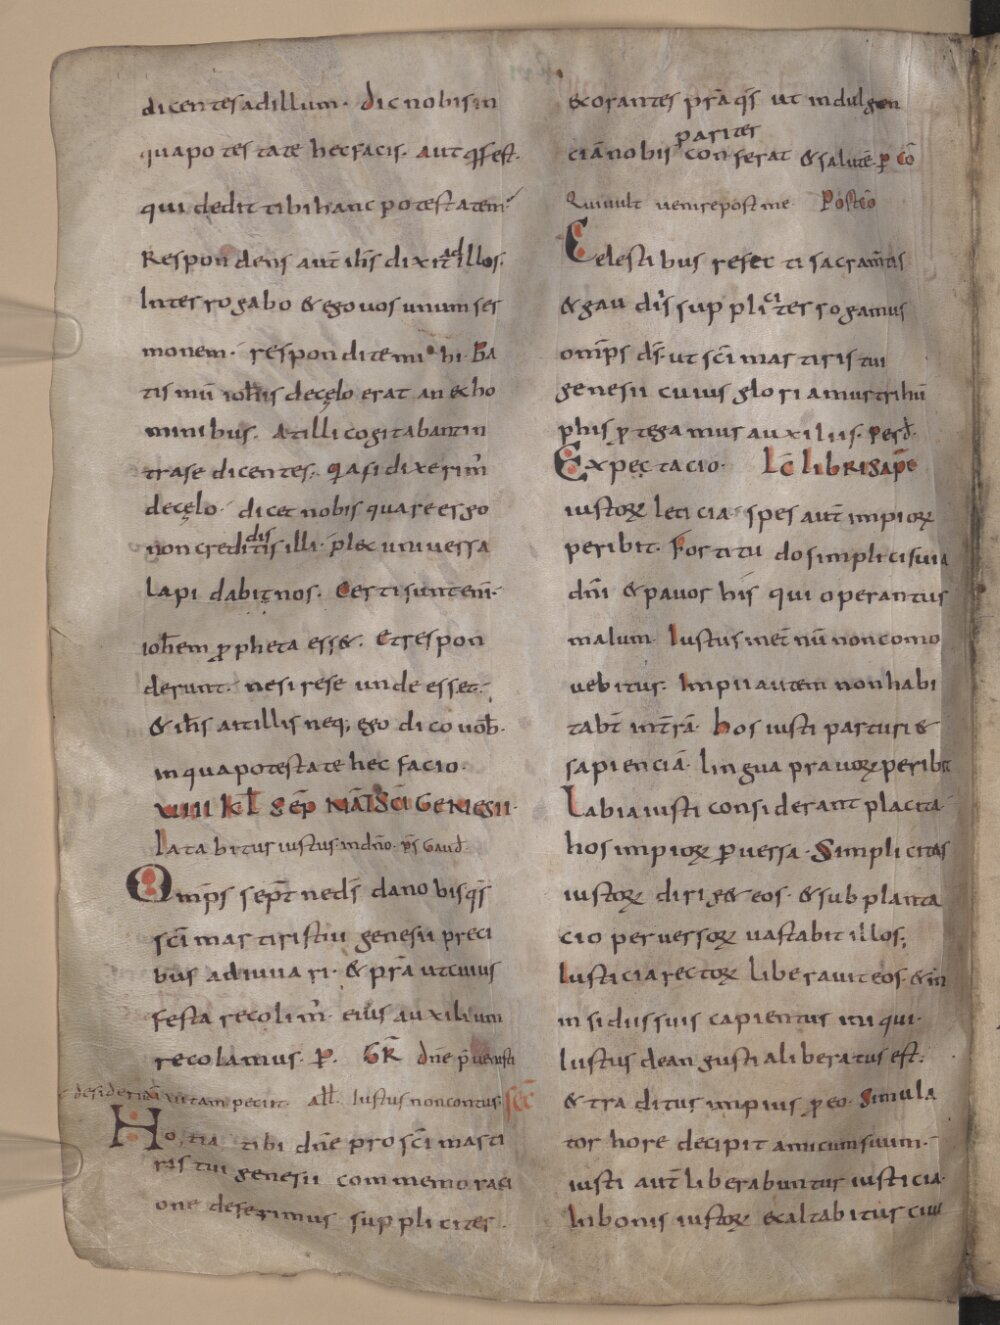 dicentes ad illum. dic nobis in
qua potestate hec facis. aut q̄s est.
qui dedit tibi hanc potestatem.
Respondens aut̄ ih̄s dixit ad illos.
Interrogabo & ego uos unum ser
monem. respondite mihi. Ba
tismū ioh̄is de cęlo erat an ex ho
minibus. At illi cogitabant in
tra se dicentes. q̄a si dixerim̄
de cęlo. dicet nobis quare ergo
non credidistis illi. plec uniuersa
lapidabit nos. Certi sunt enī.
ioh̄em ꝓpheta ess&. Et respon
derunt. nesirese unde esset.
& ih̄s ait illis neq; ego dico uob̄.
in qua potestate hec facio.
VIIII KL̄ SEP̄ NAT̄ SC̄I GENESII.
Latabitur iustus in dn̄o. p̄s Gaud̄
Omp̄s sep̄t ne ds̄ da nobis q̄s
sc̄i martiris tui genesii preci
bus adiuuari. & pr̄a ut cuius
festa recolim̄. eius auxilium
recolamus. ꝑ. GR̄ dn̄e p̄uenisti
desideriū uitam peciit. all̄. Iustus non contur. sec̄
Hostia tibi dn̄e pro sc̄i marti
ris tui genesii commemoraci
one deferimus suppliciter.
exorantes pr̄a q̄s ut indulgen
ciā nobis pariter conferat & salutē. ꝑ cō
Qui uult uenire post me Postcō
Celestibus refecti sacram̄tis
& gaudiis suppliciter rogamus
omp̄s ds̄. ut sc̄i martiris tui
genesii cuius gloriamur trihū
phis ꝓtegamur auxiliis. per d̄.
Expectacio. Lc̄ libri sap̄e
iustorꝝ leticia. spes aut̄ impiorꝝ
peribit. Fortitudo simplicis uia
dn̄i & pauor his qui operantur
malum. Iustus in et̄nū non como
uebitur. Impii autem non habi
tabt̄ int̄rā. hos iusti parturi&
sapienciā. lingua prauorꝝ peribit
Labia iusti considerant placita.
hos impiorꝝ ꝑuersa. Simplicitas
iustorꝝ dirig& eos. & subplanta
cio peruersorꝝ uastabit illos;
Iusticia rectorꝝ liberauit eos. & in
insidiis suis capientur iniqui.
Iustus de angustia liberatus est.
& traditus impius ꝓ eo. Simula
tor hore decipit amicum suum.
iusti aut̄ liberabuntur iusticia.
In bonis iustorꝝ exaltabitur ciui